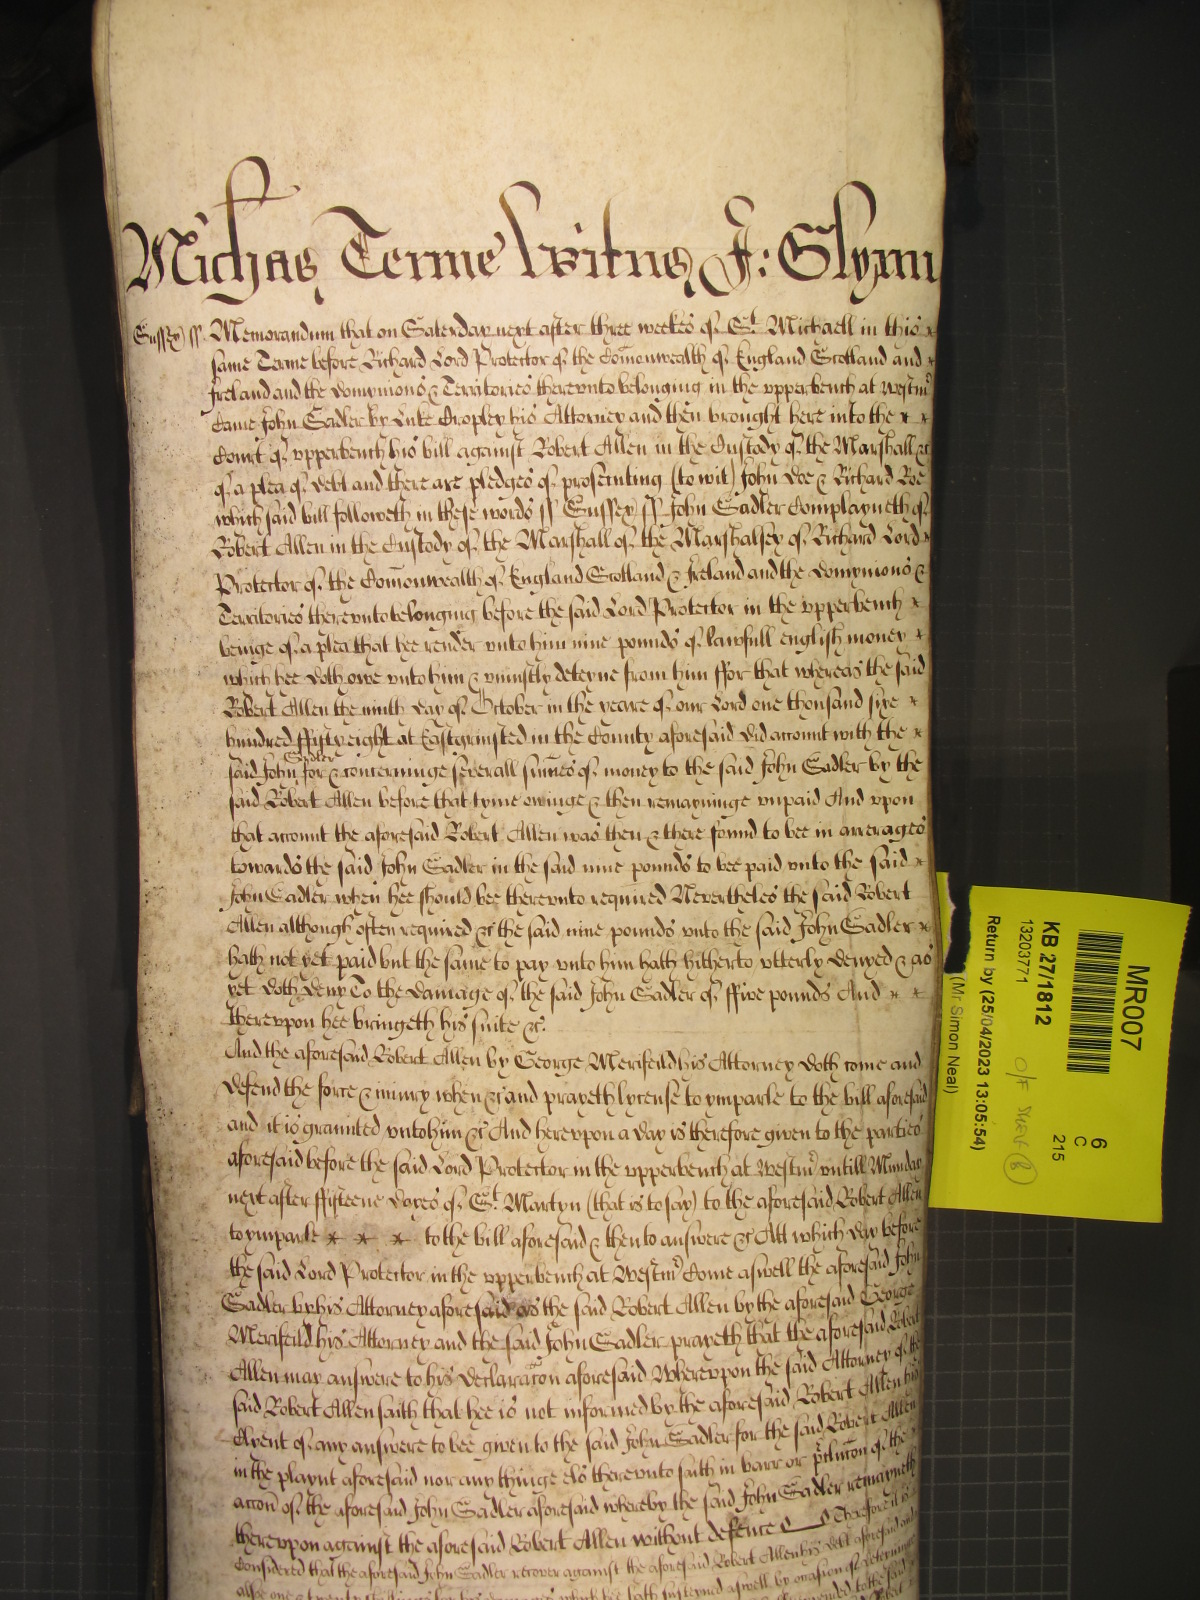 Michas Terme Witnes J: Glynn
Sussex ss Memorandum that on Saterday next after three weekes of St Michaell in this
same Terme before Richard Lord Protector of the Comonwealth of England Scotland and
Ireland and the Domynions & Territories therevnto belonging in the vpperbench at Westmr
Came John Sadler by Luke Cropley his Attorney and then brought here into the
Court of vpperbench his bill against Robert Allen in the Custody of the Marshall &c
of a plea of debt and there are pledges of prosecuting (to wit) John Doe & Richard Roe
which said bill followeth in these words ss Sussex ss John Sadler Complayneth of
Robert Allen in the Custody of the Marshall of the Marshalsey of Richard Lord
Protector of the Comonwealth of England Scotland & Ireland and the Domynions &
Territories therevnto belonging before the said Lord Protector in the vpperbench
beinge of a plea that hee render vnto him nine pounds of lawfull english money
which hee doth owe vnto him & vniustly deteyne from him ffor that whereas the said
Robert Allen the ninth day of October in the yeare of our Lord one thousand sixe
hundred ffyfty eight at Eastgrinsted in the County aforesaid did account with the
said John Sadler for & concerninge severall summes of money to the said John Sadler by the
said Robert Allen before that tyme owinge & then remayninge vnpaid And vpon
that account the aforesaid Robert Allen was then & there found to bee in arrerages
towards the said John Sadler in the said nine pounds to bee paid vnto the said
John Sadler when hee should bee therevnto required Nevertheles the said Robert
Allen although often required &c the said nine pounds vnto the said John Sadler
hath not yet paid but the same to pay vnto him hath hitherto vtterly denyed & as
yet doth deny To the damage of the said John Sadler of ffive pounds And
therevpon hee bringeth his suite &c.
And the aforesaid Robert Allen by George Merifeild his Attorney doth come and
defend the force & iniury when &c and prayeth lycense to ymparle to the bill aforesaid
and it is graunted vnto him &c And herevpon a day is therefore given to the parties
aforesaid before the said Lord Protector in the vpperbench at Westmr vntill Munday
next after ffifteene dayes of St Martyn (that is to say) to the aforesaid Robert Allen
to ymparle * * * to the bill aforesaid & then to answere &c Att which day before
the said Lord Protector in the vpperbench at Westmr Come aswell the aforesaid John
Sadler by his Attorney aforesaid as the said Robert Allen by the aforesaid George
Merifeild his Attorney and the said John Sadler prayeth that the aforesaid Robert
Allen may answere to his declaracon aforesaid Wherevpon the said Attorney of the
said Robert Allen saith that hee is not informed by the aforesaid Robert Allen his
Clyent of any answere to bee given to the said John Sadler for the said Robert Allen
in the playnt aforesaid nor any thinge els therevnto saith in barr or of the
accon of the aforesaid John Sadler aforesaid whereby the said John Sadler remayneth
therevpon against the aforesaid Robert Allen without defence Therefore it is
Considered that the aforesaid John Sadler recover against the aforesaid Robert Allen his debt aforesaid and
MR007
6
C
215
KB 27/1812
13203771
O/F
8
Return by (25/04/2023 13:05:54)
(Mr Simon Neal)